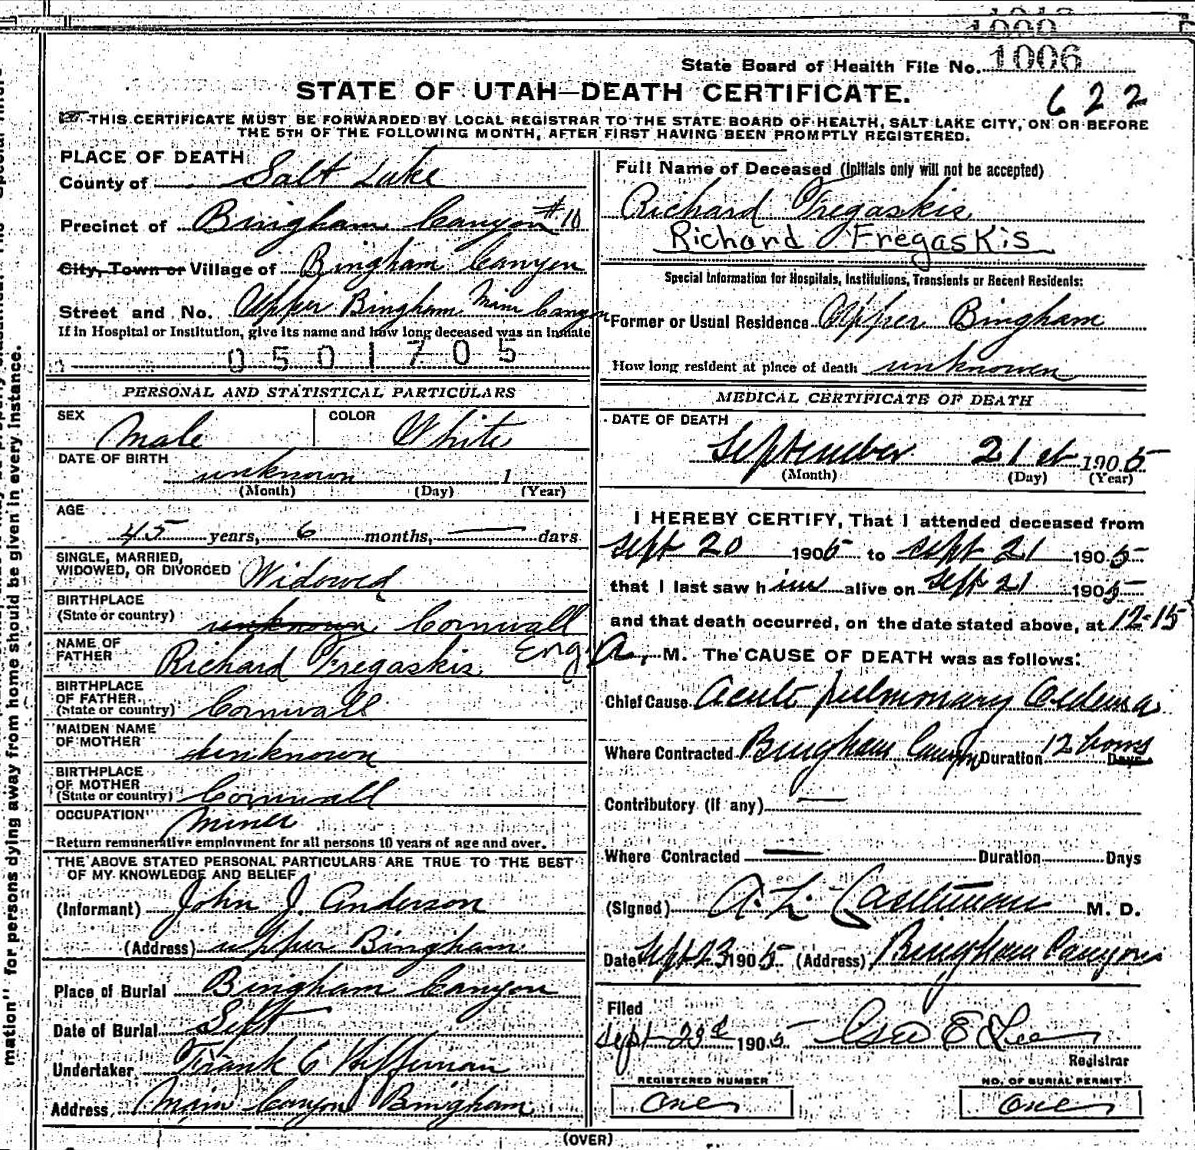 1006
State Board of Health File No. 1006
STATE OF UTAH—DEATH CERTIFICATE.
622
THIS CERTIFICATE MUST BE FORWARDED BY LOCAL REGISTRAR TO THE STATE BOARD OF HEALTH, SALT LAKE CITY, ON OR BEFORE
THE 5TH OF THE FOLLOWING MONTH, AFTER FIRST HAVING BEEN PROMPTLY REGISTERED.
PLACE OF DEATH
County of Salt Lake
Precinct of Bingham Canyon #10
City, Town or Village of Bingham Canyon
Street and No. Upper Bingham Main Canyon
If in Hospital or Institution, give its name and how long deceased was an inmate
0501705
PERSONAL AND STATISTICAL PARTICULARS
SEX Male COLOR White
DATE OF BIRTH
unknown 1
(Month) (Day) (Year)
AGE
45 years, 6 months, — days
SINGLE, MARRIED,
WIDOWED, OR DIVORCED Widowed
BIRTHPLACE
(State or country) unknown Cornwall
Eng
NAME OF
FATHER Richard Tregaskis
BIRTHPLACE
OF FATHER
(State or country) Cornwall
MAIDEN NAME
OF MOTHER unknown
BIRTHPLACE
OF MOTHER
(State or country) Cornwall
OCCUPATION Miner
Return remunerative employment for all persons 10 years of age and over.
THE ABOVE STATED PERSONAL PARTICULARS ARE TRUE TO THE BEST
OF MY KNOWLEDGE AND BELIEF
(Informant) John J. Anderson
(Address) Upper Bingham
Place of Burial Bingham Canyon
Date of Burial Sept
Undertaker Frank C Heffernan
Address Main Canyon Bingham
Full Name of Deceased (Initials only will not be accepted)
Richard Tregaskis
Richard Fregaskis
Special Information for Hospitals, Institutions, Transients or Recent Residents:
Former or Usual Residence Upper Bingham
How long resident at place of death unknowen
MEDICAL CERTIFICATE OF DEATH
DATE OF DEATH
September 21st 1905
(Month) (Day) (Year)
I HEREBY CERTIFY, That I attended deceased from
Sept 20 1905 to Sept 21 1905
that I last saw him alive on Sept 21 1905
and that death occurred, on the date stated above, at 12-15
A. M. The CAUSE OF DEATH was as follows:
Chief Cause Acute pulmonary Oedema
Where Contracted Bingham Canyon Duration 12 hours Days
Contributory (if any) —
Where Contracted — Duration Days
(Signed) A. L. Castleman M. D.
Date Sept 23 1905 (Address) Bingham Canyon
Filed
Sept 23d 1905 Geo E Lee
Registrar
REGISTERED NUMBER
One
NO. OF BURIAL PERMIT
One
(OVER)
mation" for persons dying away from home should be given in every instance.